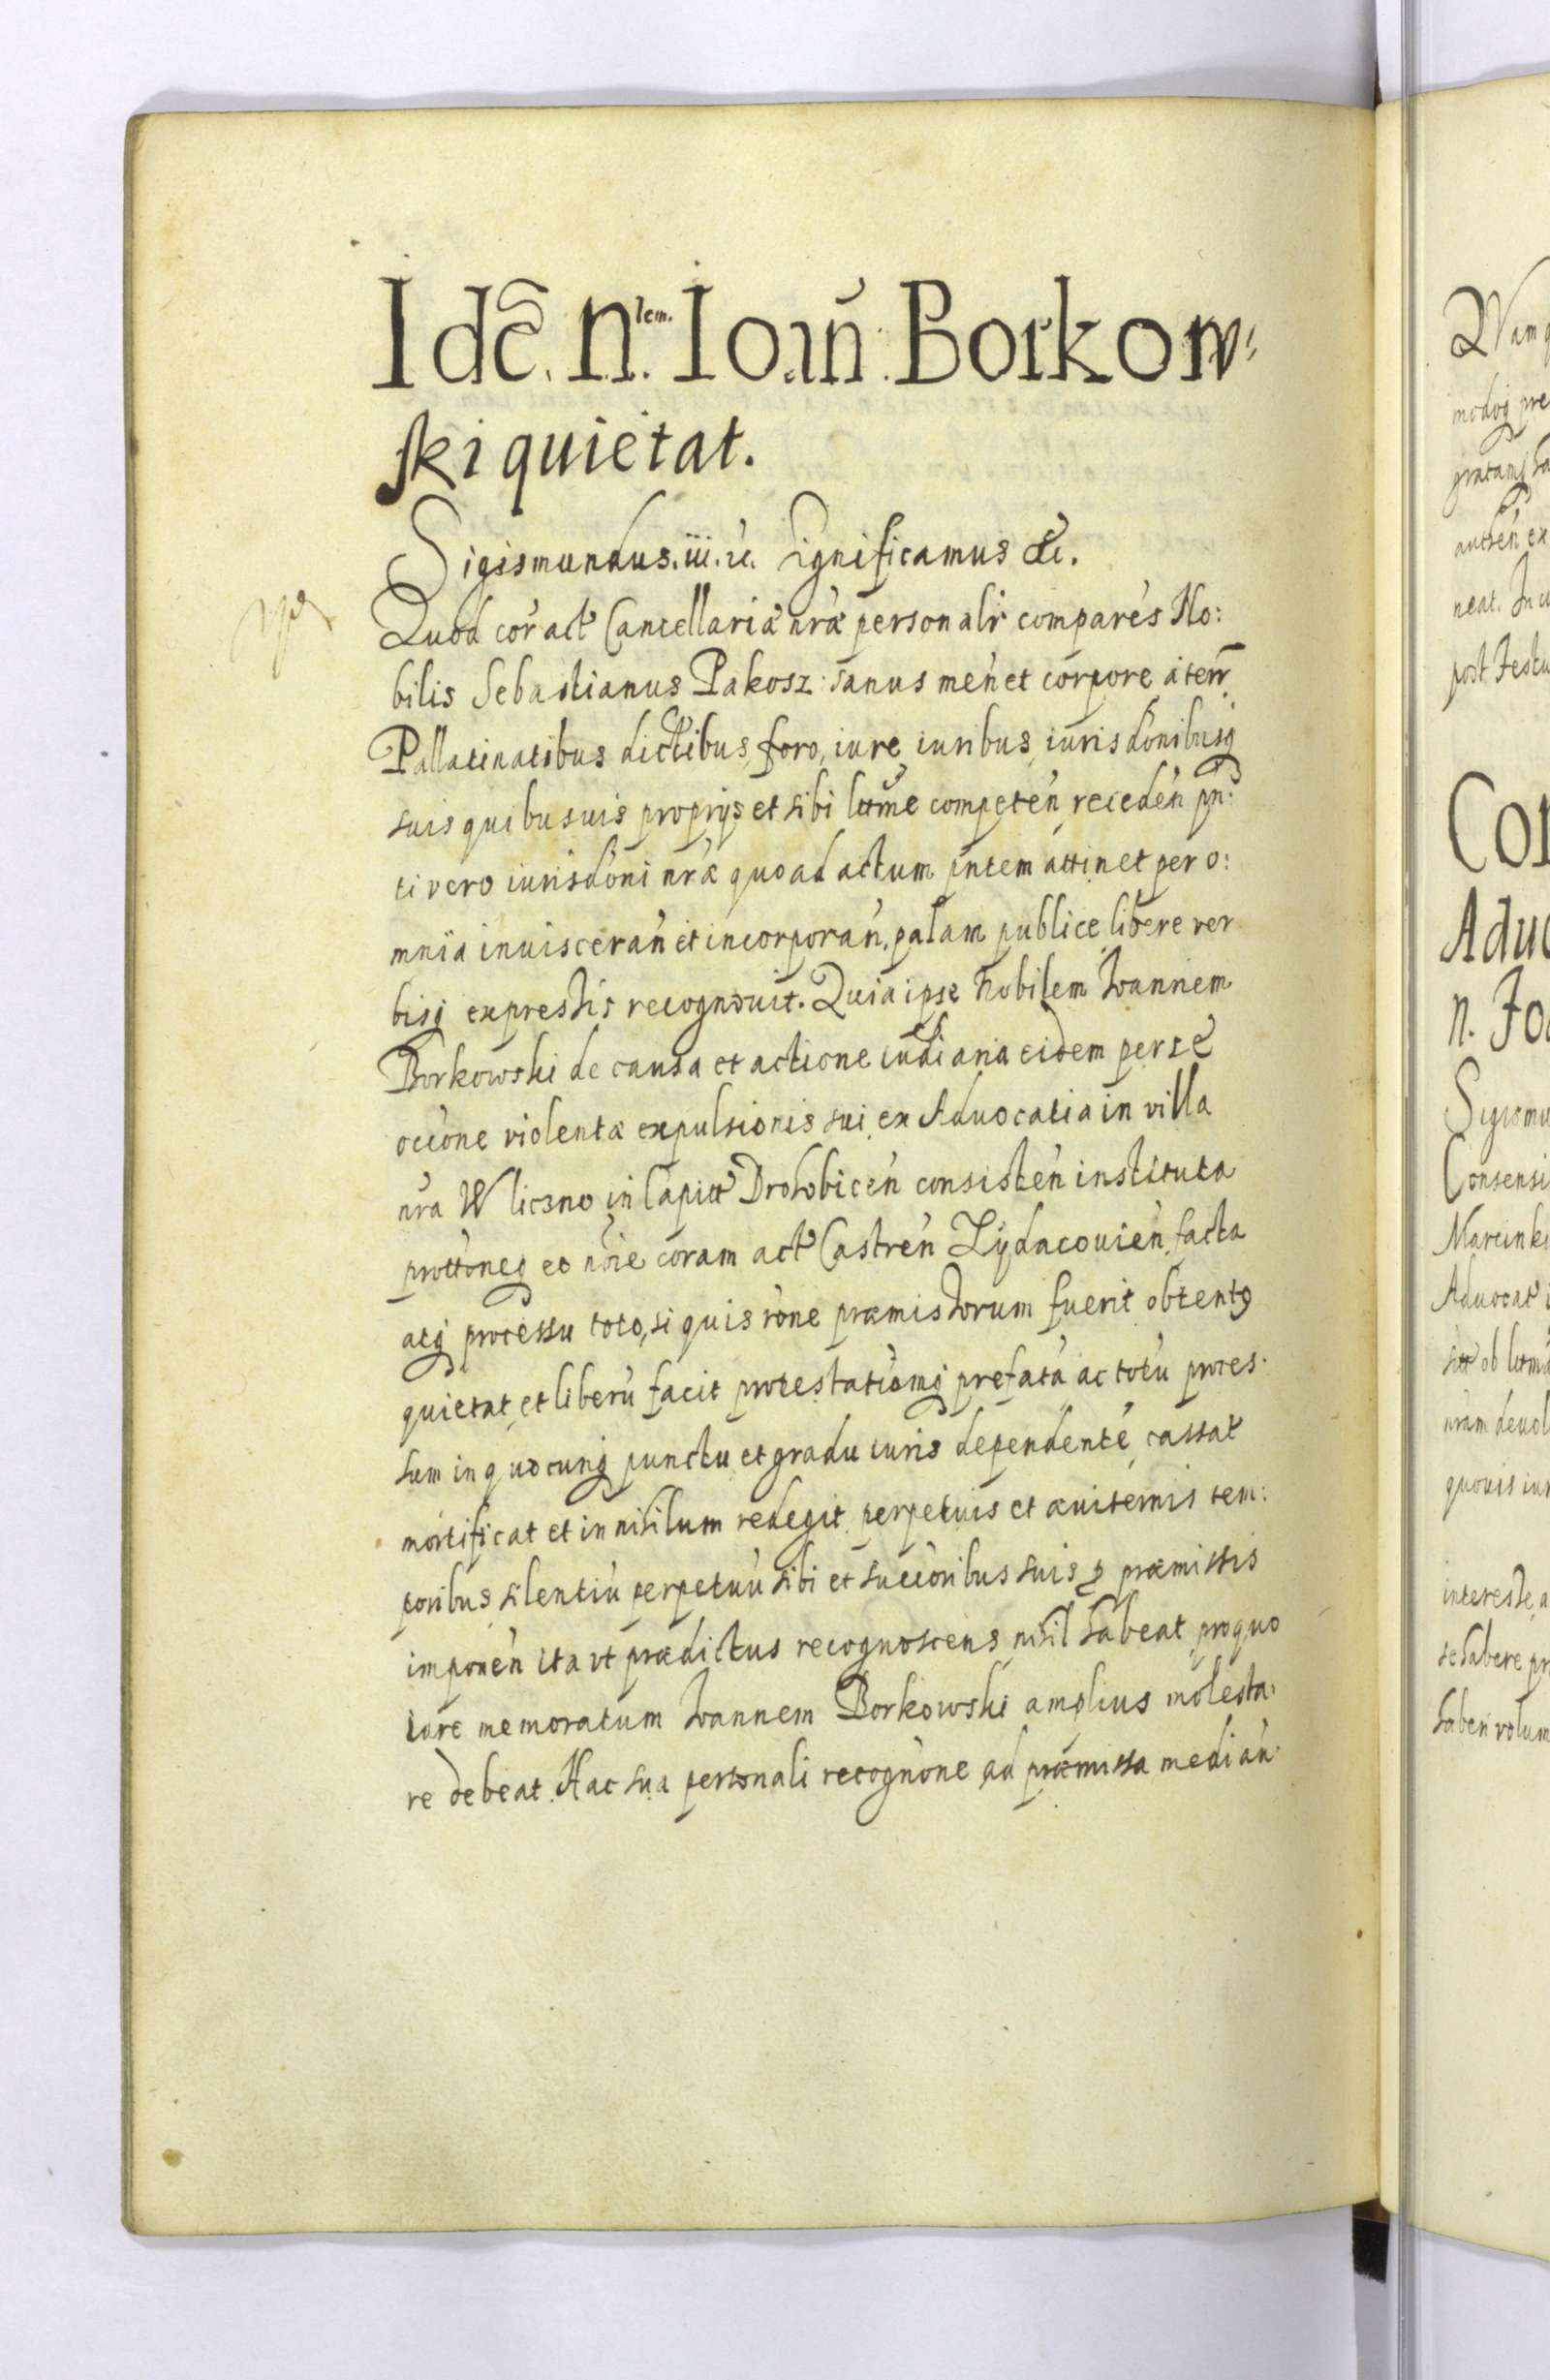 Idē. N.lem. Ioan̄. Borkow:
ski quietat.
Sigismundus. iii. rc. Significamus &c.
Quod cor̄ act Cancellariæ nr̄æ personalr̄ comparēs No:
bilis Sebastianus Pakosz: sanus men̄ et corpore a terr̄
Pallatinatibus dictibus, foro, iure, iuribus, iurisdōnibusq
suis quibusuis proprijs et sibi lt̄tme competen̄, receden̄ pn̄:
ti vero iurisdōni nr̄æ quo ad actum pn̄tem attinet per o:
mnia inuisceran̄ et incorporan̄. palam publice, libere ver
bisq expressis recognouit. Quia ipse Nobilem Ioannem
Borkowski de causa et actione iudiciaria eidem per se
occōne violentæ expulsionis sui, ex Aduocatia in villa
nr̄a Wliczno in Capittu Drohobicen̄ consisten̄ instituta
prottōneq eo nōie coram act Castren̄ Zÿdacouien̄, facta
atq processu toto, si quis rōne præmissorum fuerit obtentꝰ
quietat, et liberū facit protestatiōmq prefatā ac totū proces:
sum in quocunq punctu et gradu iuris dependentē, cassat
mortificat et in nihilum redegit, perpetuis et æuiternis tem:
poribus, silentiū perpetuū sibi et succōribus suis ꝓ præmissis
imponen̄ ita vt prædictus recognoscens nihil habeat, pro quo
iure memoratum Ioannem Borkowski amplius molesta:
re debeat. Hac sua personali recognōne ad præmissa median̄:
Quam
modoq pre
gratamq ha
authen̄ ex
neat. In
post Festu
Con
Aduo
n. Jo
Sigismu
Consensi
Marcinko
Aduocat
ob
nr̄am deuol
quouis iur
interesse, a
se habere pr
haberi volum